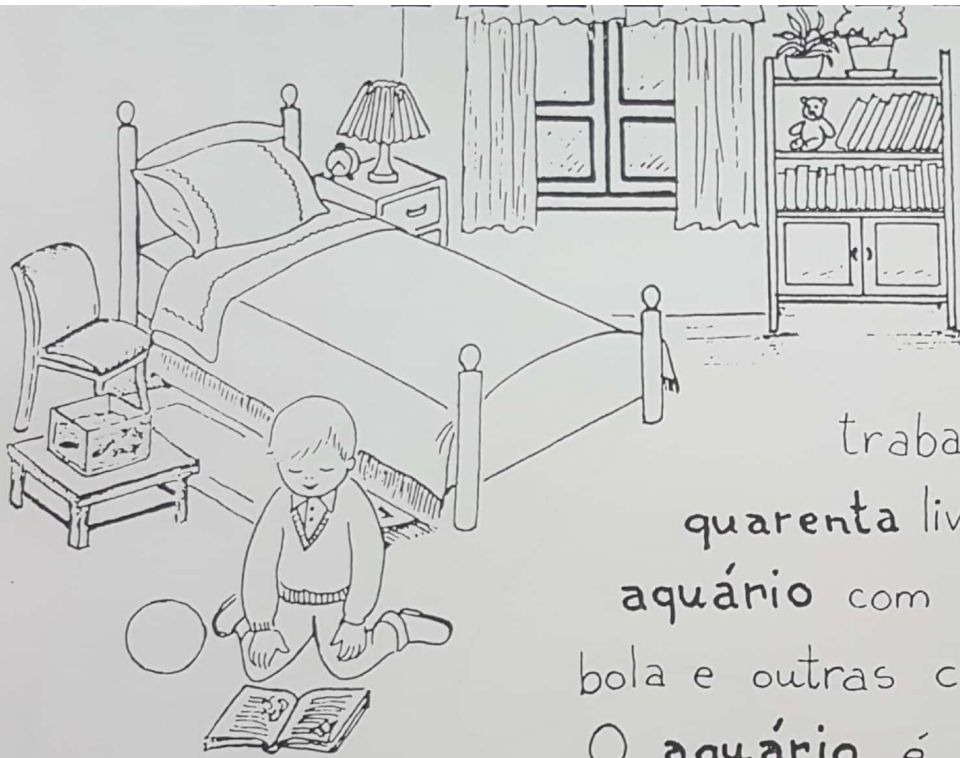 quarenta
aquário com
bola e outras
O aquário é